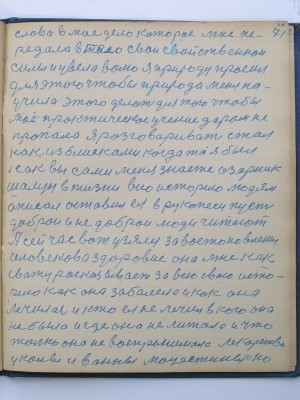 слова в мае дело которое мне пе-
редала в тело свои свойственнои
силы и увела во мо я природу просил
для этого чтобы природа меня на-
учила этого делать для того чтобы
моё практическое учение даром не
пропала я розговаривать стал
как из близкими когда та я был
как вы сами меня знаете озарник
шалун в жизни всю историю людям
описал оставил ея в рукопеси пусть
добрыи и не добрыи люди читают
Я сейчас вот узялу за востоновление
человека здоровие она мне как
сваху росказывает за всю свою исто-
рию как она заболела и как она
лечилас и кто ея не лечил у кого она
не была и где она не литала и что
только она не воспринимала лекарства
и уколы и ванны но